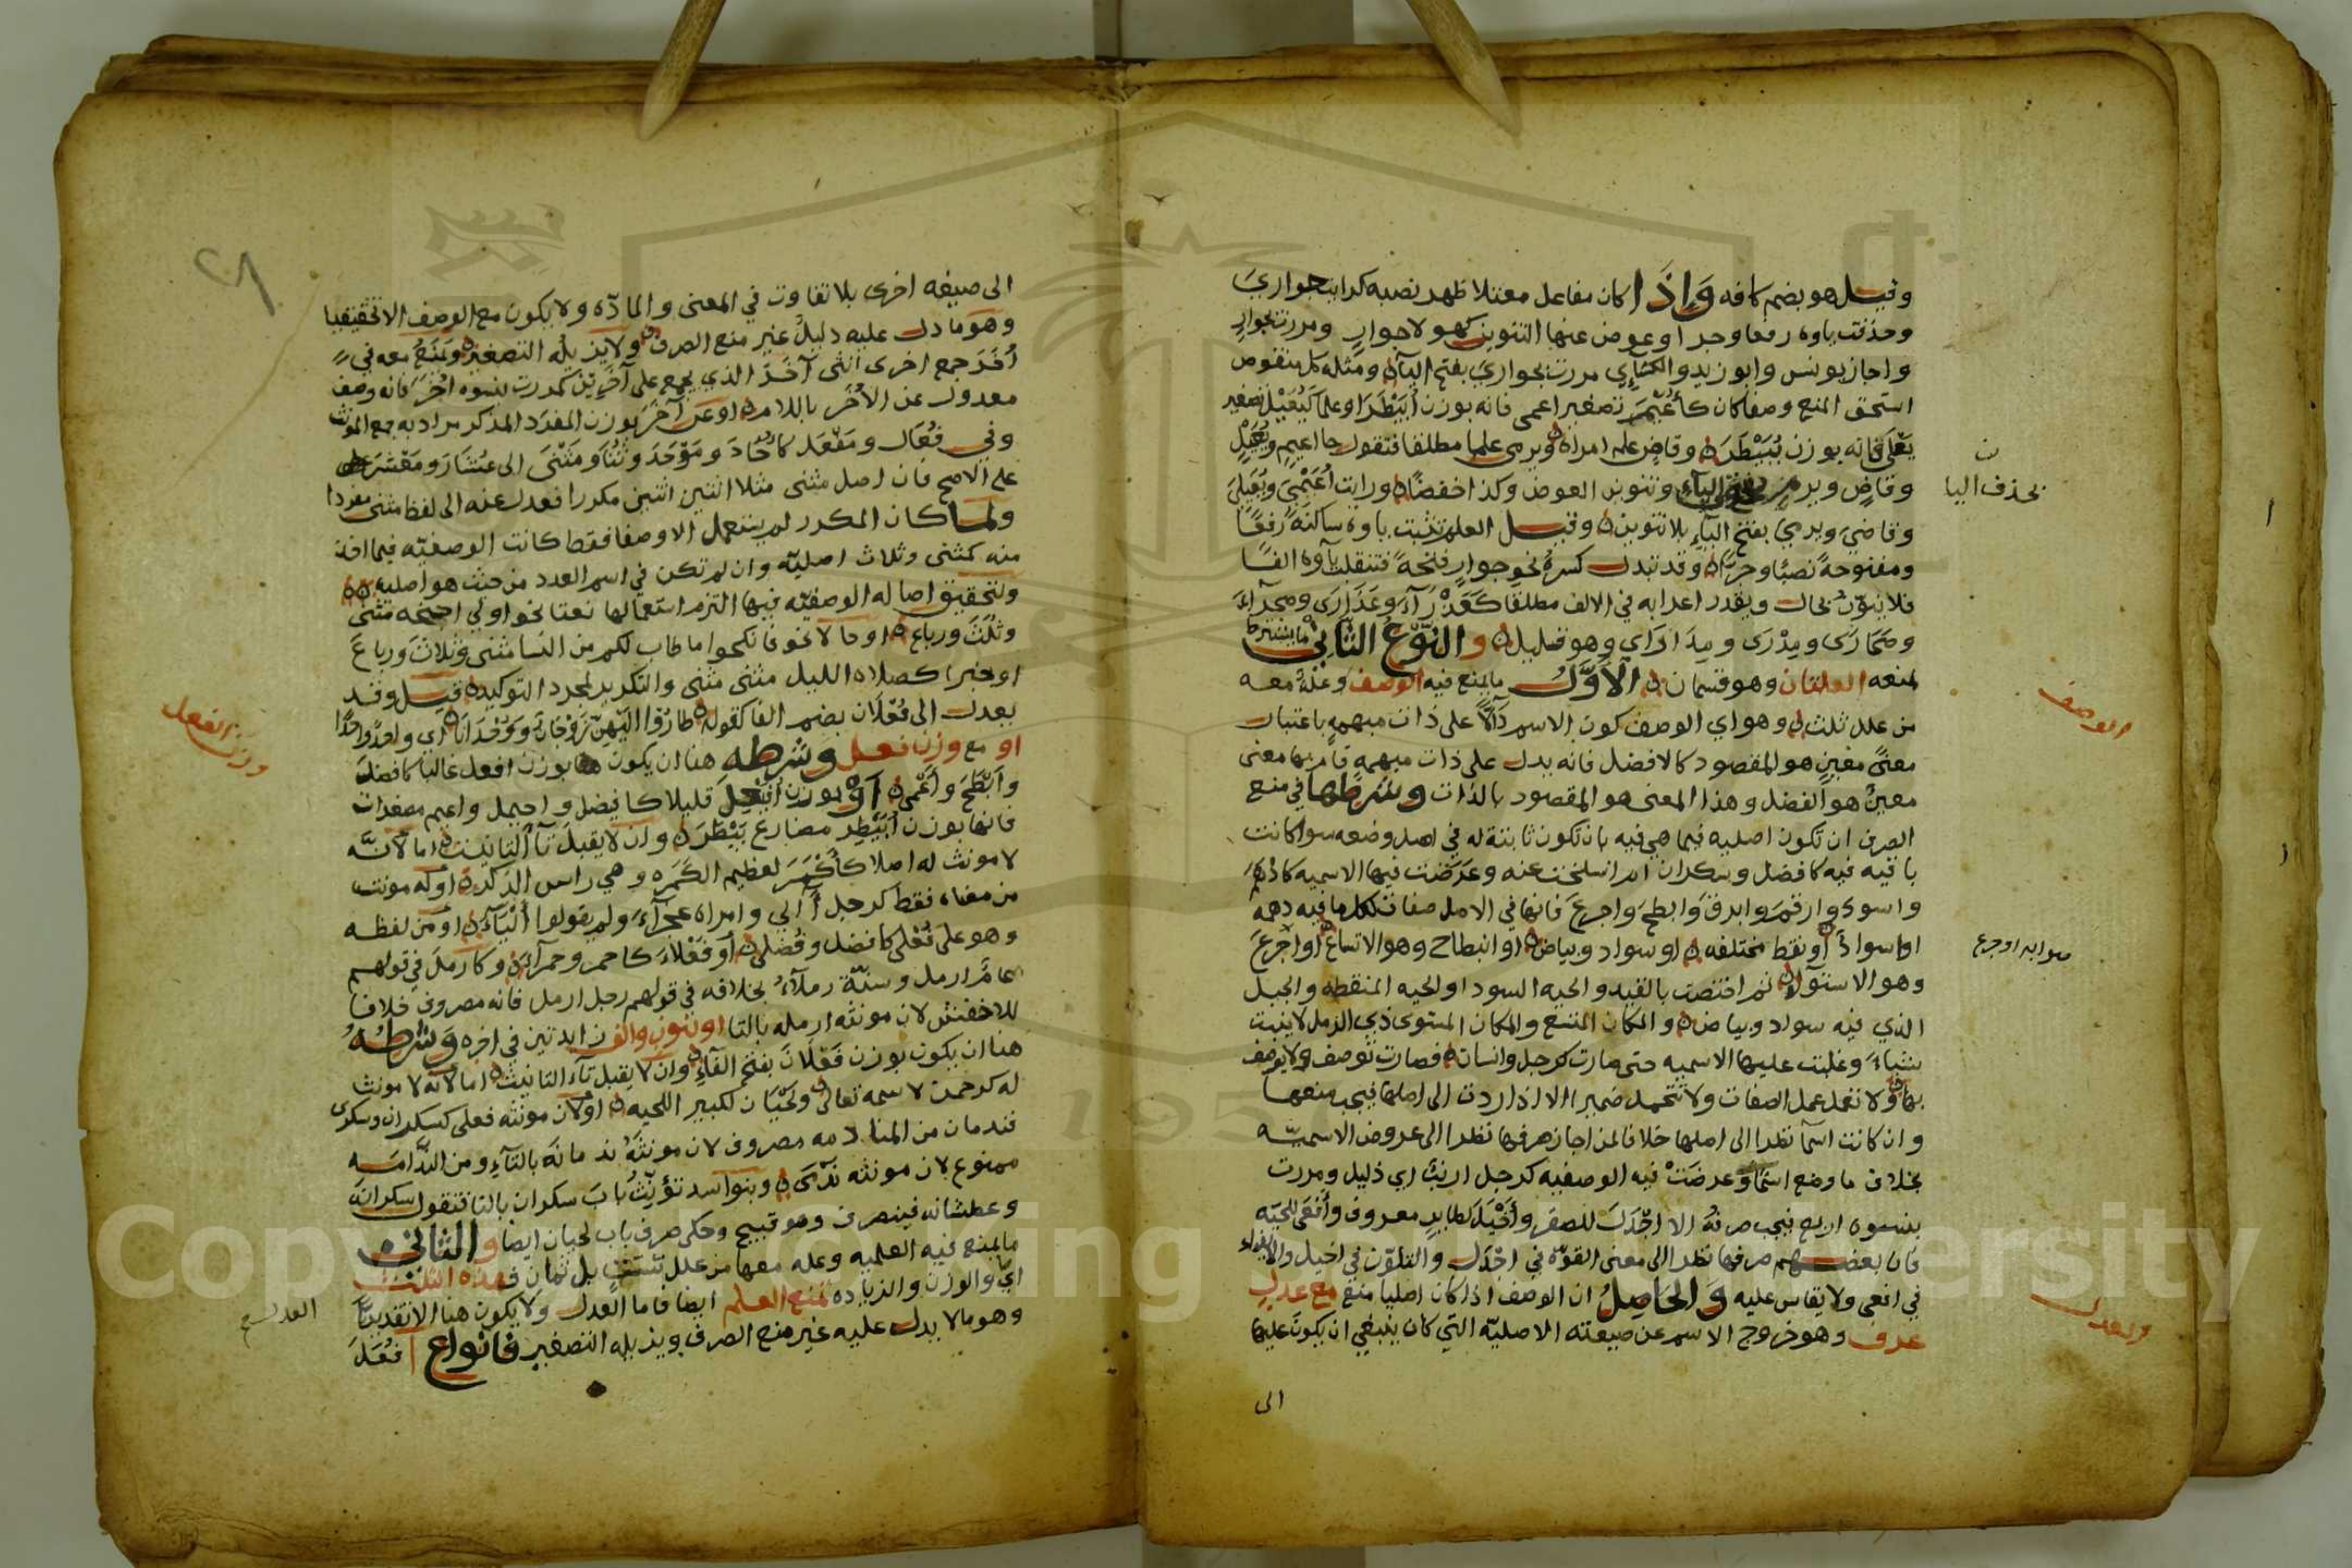 وقيل هو بضم كافه وَإِذَا كان مفاعل معتلا ظهر نصبه كرايت جواريَ
وحذفت ياوه رفعا وجرا وعوض عنها التنوين كهولا جوارٍ ومررت بجوارٍ
واجاز يونس وابو زيد والكسائي مررت بجواريَ بفتح الياء ومثله كل منقوص
استحق المنع وصفا كان كأُعَيْمٍ تصغير اعمى فانه بوزن اُبَيْطِرَ او علما كيُعَيْلٍ تصغير
يَعْلَى فانه بوزن يُبَيْطِرَ وقاضٍ علم امراة ويرمى علما مطلقا فتقول جا اعيمٍ ويُعَيْلٍ
وقاضٍ ويرمٍ بحذف الياء وتنوين العوض وكذا خفضًا ورايت اُعَيْمِيَ ويُعَيْلِيَ
وقاضيَ ويرميَ بفتح الياء بلا تنوين وقيل العلم تثبت ياوه ساكنةً رفعًا
ومفتوحةً نصبًا وجرًّا وقد تبدل كسرة نحو جوارٍ فتحةً فتنقلب ياوه الفًا
فلا ينوّن بحال ويقدر اعرابه في الالف مطلقا كَعَذْرَآءَ وعَذَارَى وصحرآءَ
وصَحَارَى ومِدْرَى ومدارَى وهو قليل والنَّوْعُ الثَّاني ما يشترط
لمنعه العلتان وهو قسمان الْأَوَّلُ ما يمنع فيه الوصف وعلةٌ معه
من علل ثلث وهو اي الوصف كون الاسم دَآلًّا على ذات مبهمه باعتبار
معنًى معينٍ هو المقصود كالافضل فانه يدل على ذات مبهمةٍ قام بها معنى
معينٌ هو الفضل وهذا المعنى هو المقصود بالذات وشرطها في منع
الصرف ان تكون اصليه فيما هي فيه بان تكون ثابتة له في اصل وضعه سوا كانت
باقيه فيه كافضل وسكران ام انسلخت عنه وعرضت فيها الاسميه كادهمَ
واسود وارقمَ وابرقَ وابطحَ واجرعَ فانها في الاصل صفات لكل ما فيه دهمةٌ
او اسوادٌ او نقط مختلفه او سواد وبياض او انبطاح وهو الاتساع او اجرعَ
وهو الاستوآء ثم اختصت بالقيد والحيه السودا والحيه المنقطه والجبل
الذي فيه سواد وبياض والمكان المتسع والمكان المستوى ذي الرمل لا ينبت
شياءً وغلبت عليها الاسميه حتى صارت كرجل وانسان فصارت توصف ولا يوصف
بها ولا تعمل عمل الصفات ولا تتحمل ضميرا الا اذا ردت الى اصلها فيجب منعها
وان كانت اسمآ نظرا الى اصلها خلافا لمن اجاز صرفها نظرا الى عروض الاسميّه
بخلاف ما وضع اسمًا وعرضَتْ فيه الوصفيه كرجل ارنبٌ اي ذليل ومررت
بنسوه اربع فيجب صرفهُ الا اجْدَلَ للصقر وأَخْيَلَ لطايرٍ معروف وأَفْعَى للحيّه
فان بعضهم صرفها نظرا الى معنى القوّة في اجْدَل والتلوّن في اخيل والايذاء
في افعى ولا يقاس عليه وَالحَاصِلُ ان الوصف اذا كان اصليا منع مع عدلٍ
عرف وهو خروج الاسم عن صيغته الاصليّه التي كان ينبغي ان يكونَ عليها
الى
بحذف اليا
الوصف
صوابه او جرع
والعدل
الى صيغه اخرى بلا تفاوت في المعنى والمادّه ولا يكون مع الوصف الا تحقيقيا
وهو ما دل عليه دليل غير منع الصرف ولا يزيله التصغير ويَمنَعُ معه في
اُخَرَ جمع اخرى انثى آخَرَ الذي يجمع على آخَرِيْن كمررت بنسوه اُخَرَ فانه وصف
معدول عن الاُخَر باللام او عن آخَرَ بوزن المفرد المذكر مراد به جمع المونث
وفي فُعَال ومَفْعَل كاُحَادَ ومَوْحَدَ وثُنَا ومَثْنَى الى عُشَارَ ومَعْشَرَ
على الاصح فان اصل مثنى مثلا اثنين اثنين مكررا فعدل عنه الى لفظ مثنى مفردا
ولما كان المكرر لم يستعمل الا وصفا فقط كانت الوصفيّه فيما اخذ
منه كمثنى وثلاث اصليّه وان لم تكن في اسم العدد من حيث هو اصليه
ولتحقيق اصاله الوصفيّه فيها التزم استعمالها نعتا نحو اولي اجنحه مثنى
وثُلَثَ ورباع او حالا نحو فانكحوا ما طاب لكم من النسا مثنى وثلاث ورباعَ
او خبرا كصلاه الليل مثنى مثنى والتكرير لمجرد التوكيد قيل وقد
يعدل الى فُعْلَان بضم الفا كقوله طارُوا اليْهِنّ زَوْجَانَ ووُحْدَانَا اي واحدًا واحدًا
او مع وزن فعل وشرطه هنا ان يكون بوزن افعل غالبا كافضلَ
وأبْطَحَ وأعْمى أَوْ بوزن أُفَيْعِلَ قليلا كافيضل واحيمل واعيم مصغرات
فانها بوزن اُبَيْطِر مضارع بَيْطَرَ وان لا يقبلَ تآ التانيث اما لانّه
لا مونث له اصلا كأكْمَرَ لعظيم الكَمَره وهي راس الذكر او له مونث
من معناه فقط كرجل آلي وامراه عجزآءَ ولم يقولوا أَلْيَآءَ او من لفظه
وهو على فُعْلى كافضل وفُضلى أو فَعْلآءَ كاحمر وحمرآءَ وكارملَ في قولهم
عامٌ ارمل وسنَةٌ رملآءُ بخلافه في قولهم رجل ارمل فانه مصروف خلافا
للاخفش لان مونثه ارمله بالتا او بنون والف زايدتين في اخره وَشَرطُهُ
هنا ان يكون بوزن فَعْلَانَ بفتح الفآءِ وان لا يقبل تآءَ التانيث اما لانه لا مونث
له كرحمن لاسمه تعالى ولَحْيَان لكبير اللحيه او لان مونثه فعلى كسكران وسكرى
فندمان من المنادمه مصروف لان مونثهُ ندمانة بالتآءِ ومن النَّدَامه
ممنوع لان مونثه نَدْمَى وبنو اسد تؤنِّثُ بابَ سكران بالتا فتقول سكرانه
وعطشانه فينصرف وهو قبيح وحكى صرف باب لحيان ايضا والثاني
ما يمنع فيه العلميه وعله معها من علل ستٍّ بل ثمان فهذه الثلث
اي والوزن والزياده تمنع العلم ايضا فاما العدل ولا يكون هنا الا تقديريًّا
وهو ما لا يدل عليه غير منع الصرف ويزيله التصغير فانواع ا فُعَلَ
وزن الفعل
العدل
Copy King Saud University